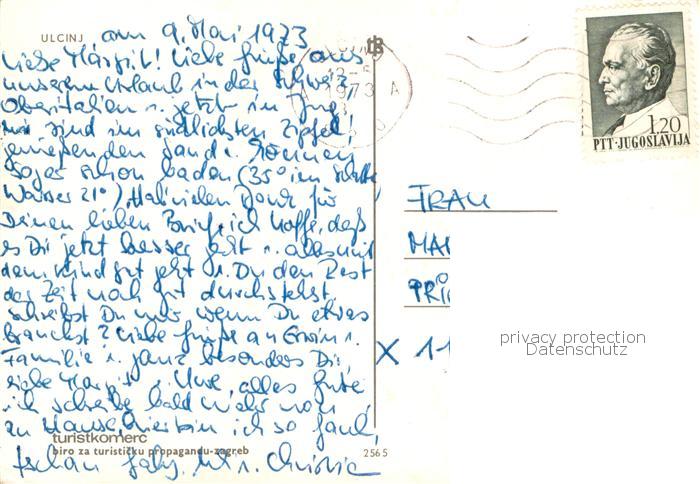 ULCINJ am 9. Mai 1973
Liebe Margit! Liebe Grüße aus
unserem Urlaub in der Schweiz,
Oberitalien u. jetzt in Jug
wir sind im südlichsten Zipfel!
genießen den Sand u. können
sogar schon baden (35° im Schatten
Wasser 21°). Hab vielen Dank für
Deinen lieben Brief, ich hoffe, daß
es Dir jetzt besser geht u. alles mit
dem Kind gut geht u. Du den Rest
der Zeit noch gut durchstehst.
schreibst Du mir wenn Du etwas
brauchst? Liebe Grüße an Erwin u.
Familie u. ganz besonders Dir,
liebe Margit u. Uwe, alles Gute
ich schreibe bald mehr von
zu Hause, hier bin ich so faul,
turistkomerc
biro za turističku propagandu-zagreb
2565
u. Christa
1973
A
1.20
PTT-JUGOSLAVIJA
FRAU
MA
PRI
X 11
privacy protection
Datenschutz